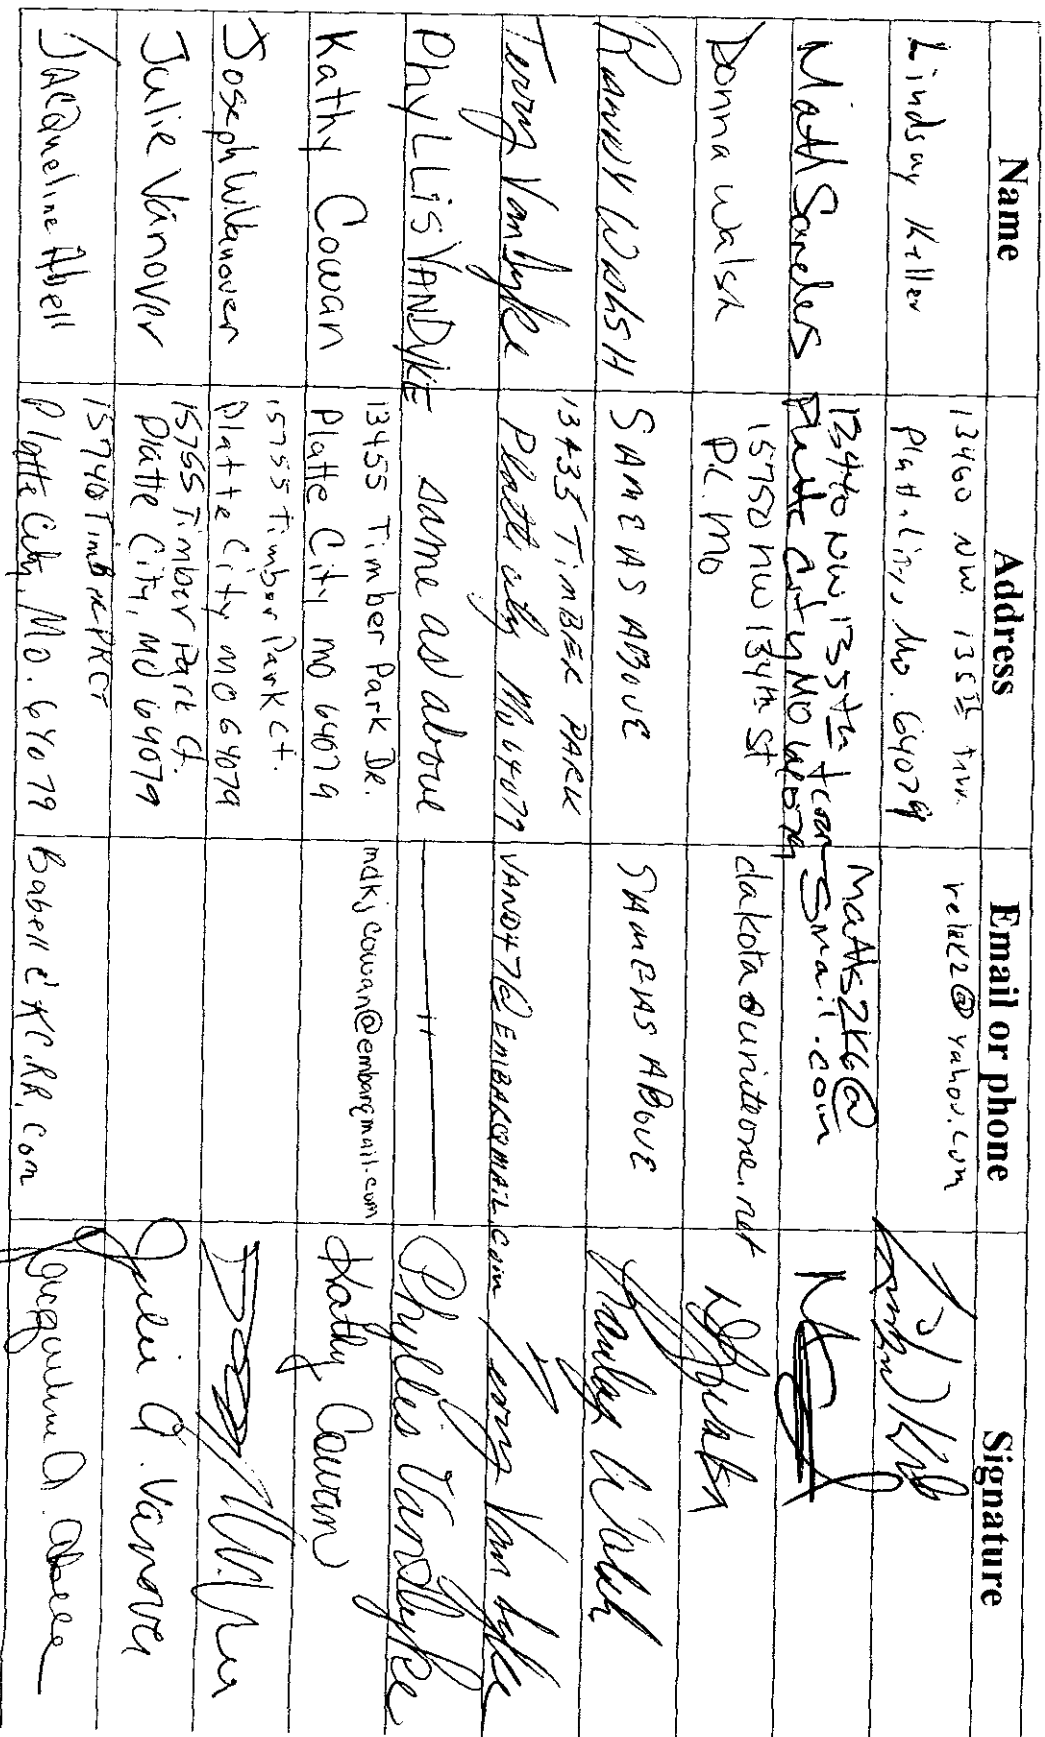 Name Address Email or phone Signature
Lindsay Keller
13460 NW. 135th Terr.
Platt. City, Mo. 64079
relek2@yahoo.com
Matt Sanders
13440 NW 135th terr
Platte City MO 64079
Matts2K6@
gmail.com
Donna Walsh
15750 NW 134th St
PC. Mo
dakota@uniteone.net
Randy Walsh
SAME AS ABOVE
SAME AS ABOVE
Randy Walsh
Terry VanDyke
13435 TIMBER PARK
Platte City Mo 64079
VAND47@EMBARQMAIL.com
Terry Van Dyke
PhyLLis VANDYKE
same as above
Phyllis VanDyke
Kathy Cowan
13455 Timber Park Dr.
Platte City, mo 64079
mdkjcowan@embarqmail.com
Kathy Cowan
Joseph W. Vanover
15755 Timber Park Ct.
Platte City MO 64079
Julie Vanover
15755 Timber Park Ct.
Platte City, MO 64079
Julie A. Vanover
JACQueline Abell
15740 TimBerPKCT
Platte City, Mo. 64079
Babell@KC.RR.Com
Jacqueline A. Abell